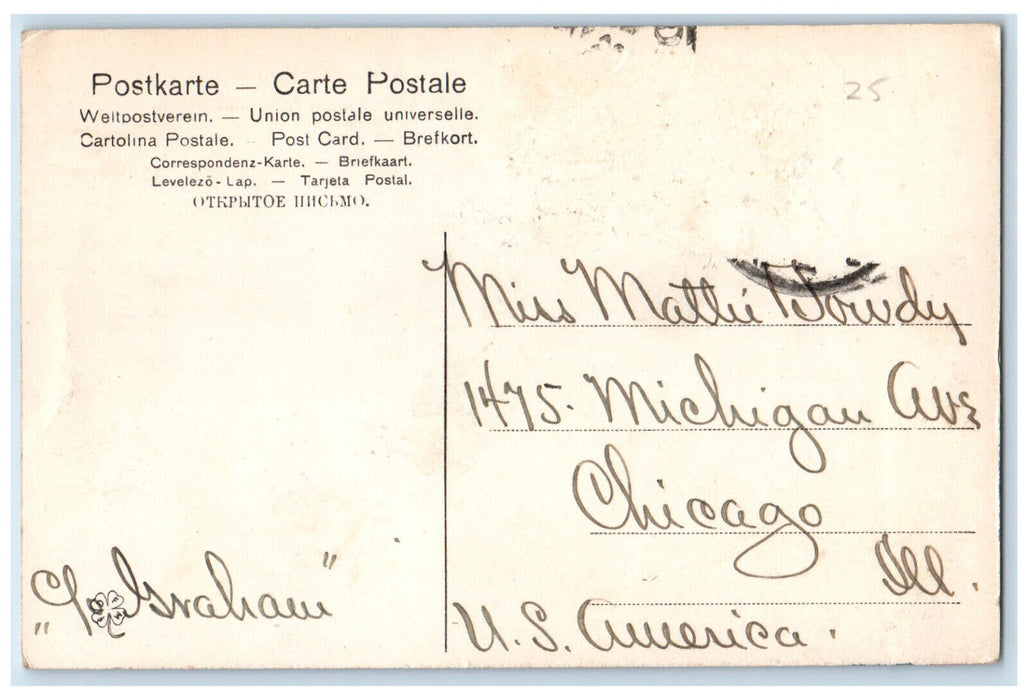 Postkarte — Carte Postale
Weltpostverein. — Union postale universelle.
Cartolina Postale. - Post Card. — Brefkort.
Correspondenz-Karte. — Briefkaart.
Levelező-Lap. — Tarjeta Postal.
ОТКРЫТОЕ ПИСЬМО.
25
Miss Mattie Dowdy
1475. Michigan Ave
Chicago
Ill.
U. S. America.
Graham"